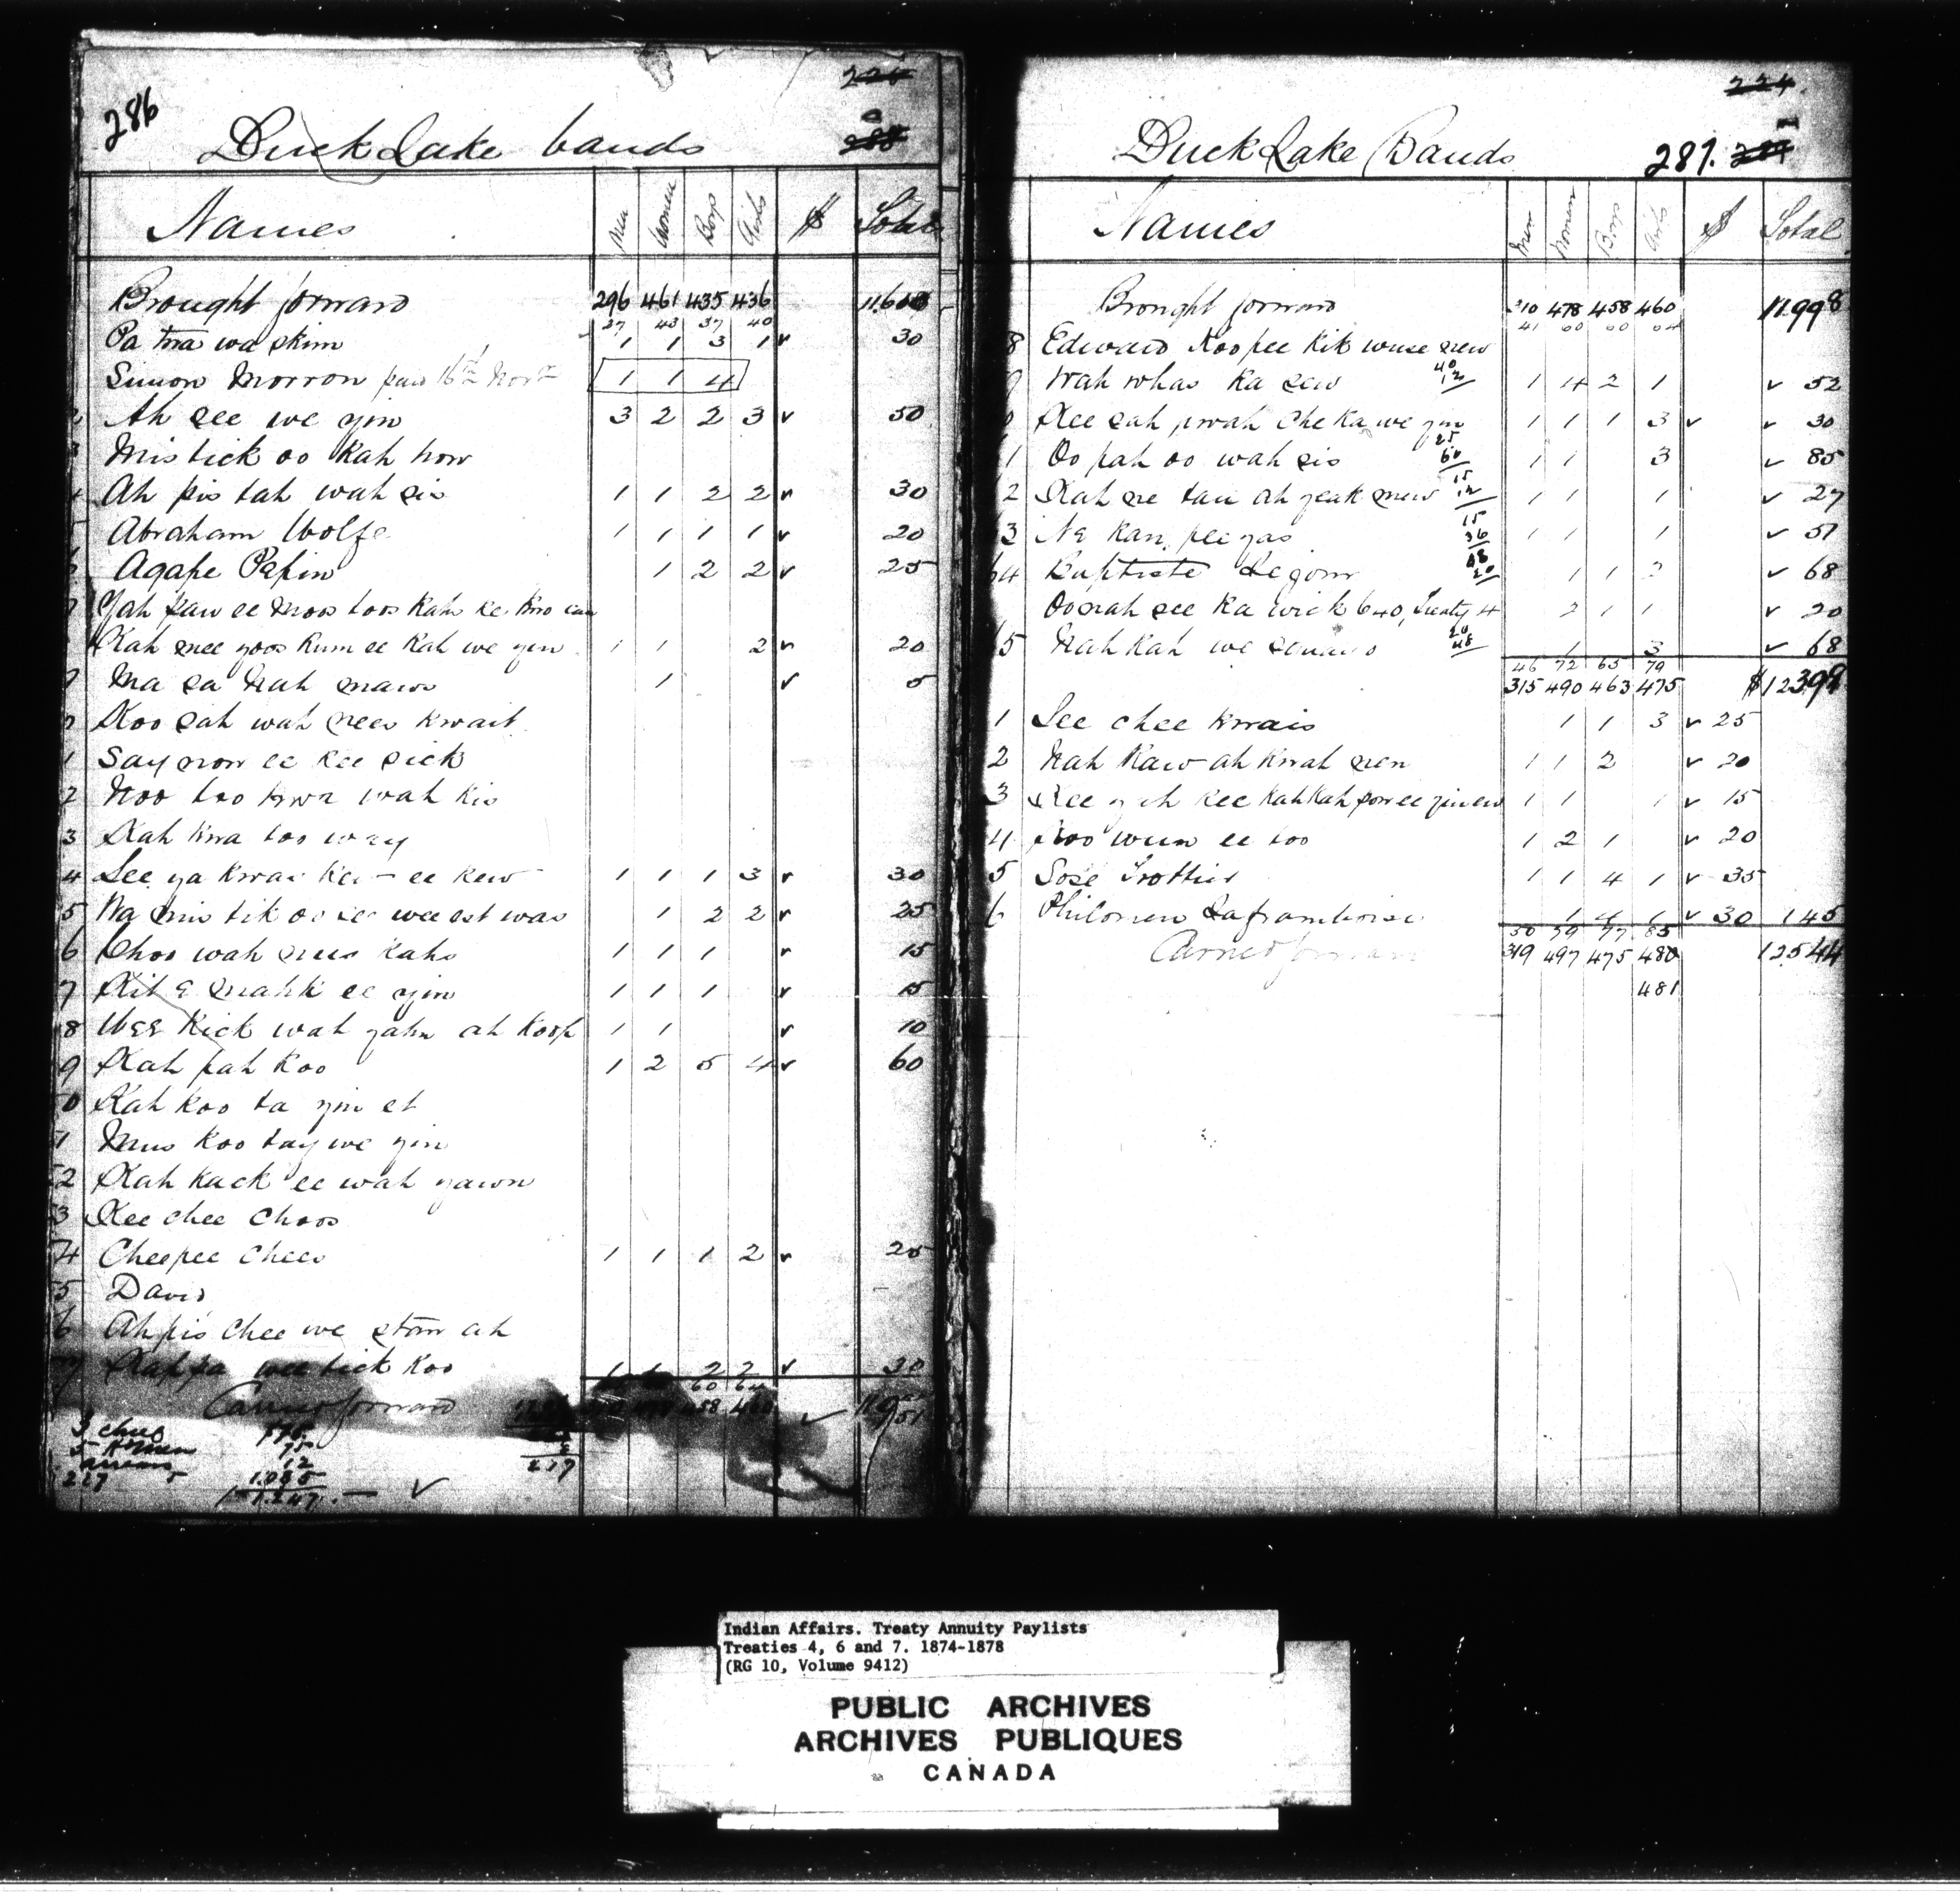 286
Duck Lake bands
Names Men Women Boys Girls $ Total
Brought forward 296 461 435 436
27 43 37 40
Pa wa skim 1 1 3 1 30
Simon Morron paid 16th 1 1 4
Ah see we yin 3 2 2 3 50
Mis tick oo Kah how
Ah pis tah wah sis 1 1 2 2 30
Abraham Wolfe 1 1 1 1 20
Agape Papin 1 2 2 25
Yah ee moos toos Kah ke
Kah nee yoos Kum ee Kah we yin 1 1 2 20
Ma sa Nah 1 5
Koo sah wah nees Kwait
Say now ee Kee sick
Noo too Kwa wah Kis
Kah Kwa too way
See ya Kwai ee Kew 1 1 1 3 30
Na mis tik oo see wee est was 1 2 2 25
Choo wah nees Kahs 1 1 1 15
Kit E mahk ee yin 1 1 1 15
WEE Kick wah yahn ah Koop 1 1 10
Kah pah Koo 1 2 5 4 60
Kah Koo ta yin et
Mus Koo tay we yin
Kah Kack ee wah yawn
Kee chee Choos
Cheepee Chees 1 1 1 2 25
David
Ah pis chee we stow ah
Kah pa wee tick Koo 1 1 2 2 30
60 64
Carried forward 458 460
75
12
1.085
1.247.
227
217
Duck Lake Bands 287.
Names Men Women Boys Girls $ Total
Brought forward 310 478 458 460 11.998
41 60 60 64
8 Edward Koo pee Kik
9 Wah whas Ka sew 40 12 1 4 2 1 52
Kee sah pwah che Ka we yin 1 1 1 3 30
1 Oo pah oo wah sis 25 60 1 1 3 85
2 Kah ne tau ah yeak new 15 12 1 1 1 27
3 NE Kan pee yas 15 36 1 1 1 51
64 Baptiste 48 20 1 1 2 68
Oo nah see Ka wick 640, Treaty 4 2 1 1 20
5 Nah Kah we 20 48 1 3 68
46 72 65 79
315 490 463 475 $12399
1 See chee Kwais 1 1 3 25
2 Nah Kaw ah Kwah nen 1 1 2 20
3 Kee yah Kee Kah Kah pow ee yin ew 1 1 1 15
4 Koo wun ee too 1 2 1 20
5 Sose Trottier 1 1 4 1 35
6 Philomen Laframboise 1 4 1 30 145
50 79 77 85
Carried forward 319 497 475 480 12544
481
Indian Affairs. Treaty Annuity Paylists
Treaties 4, 6 and 7. 1874-1878
(RG 10, Volume 9412)
PUBLIC ARCHIVES
ARCHIVES PUBLIQUES
CANADA